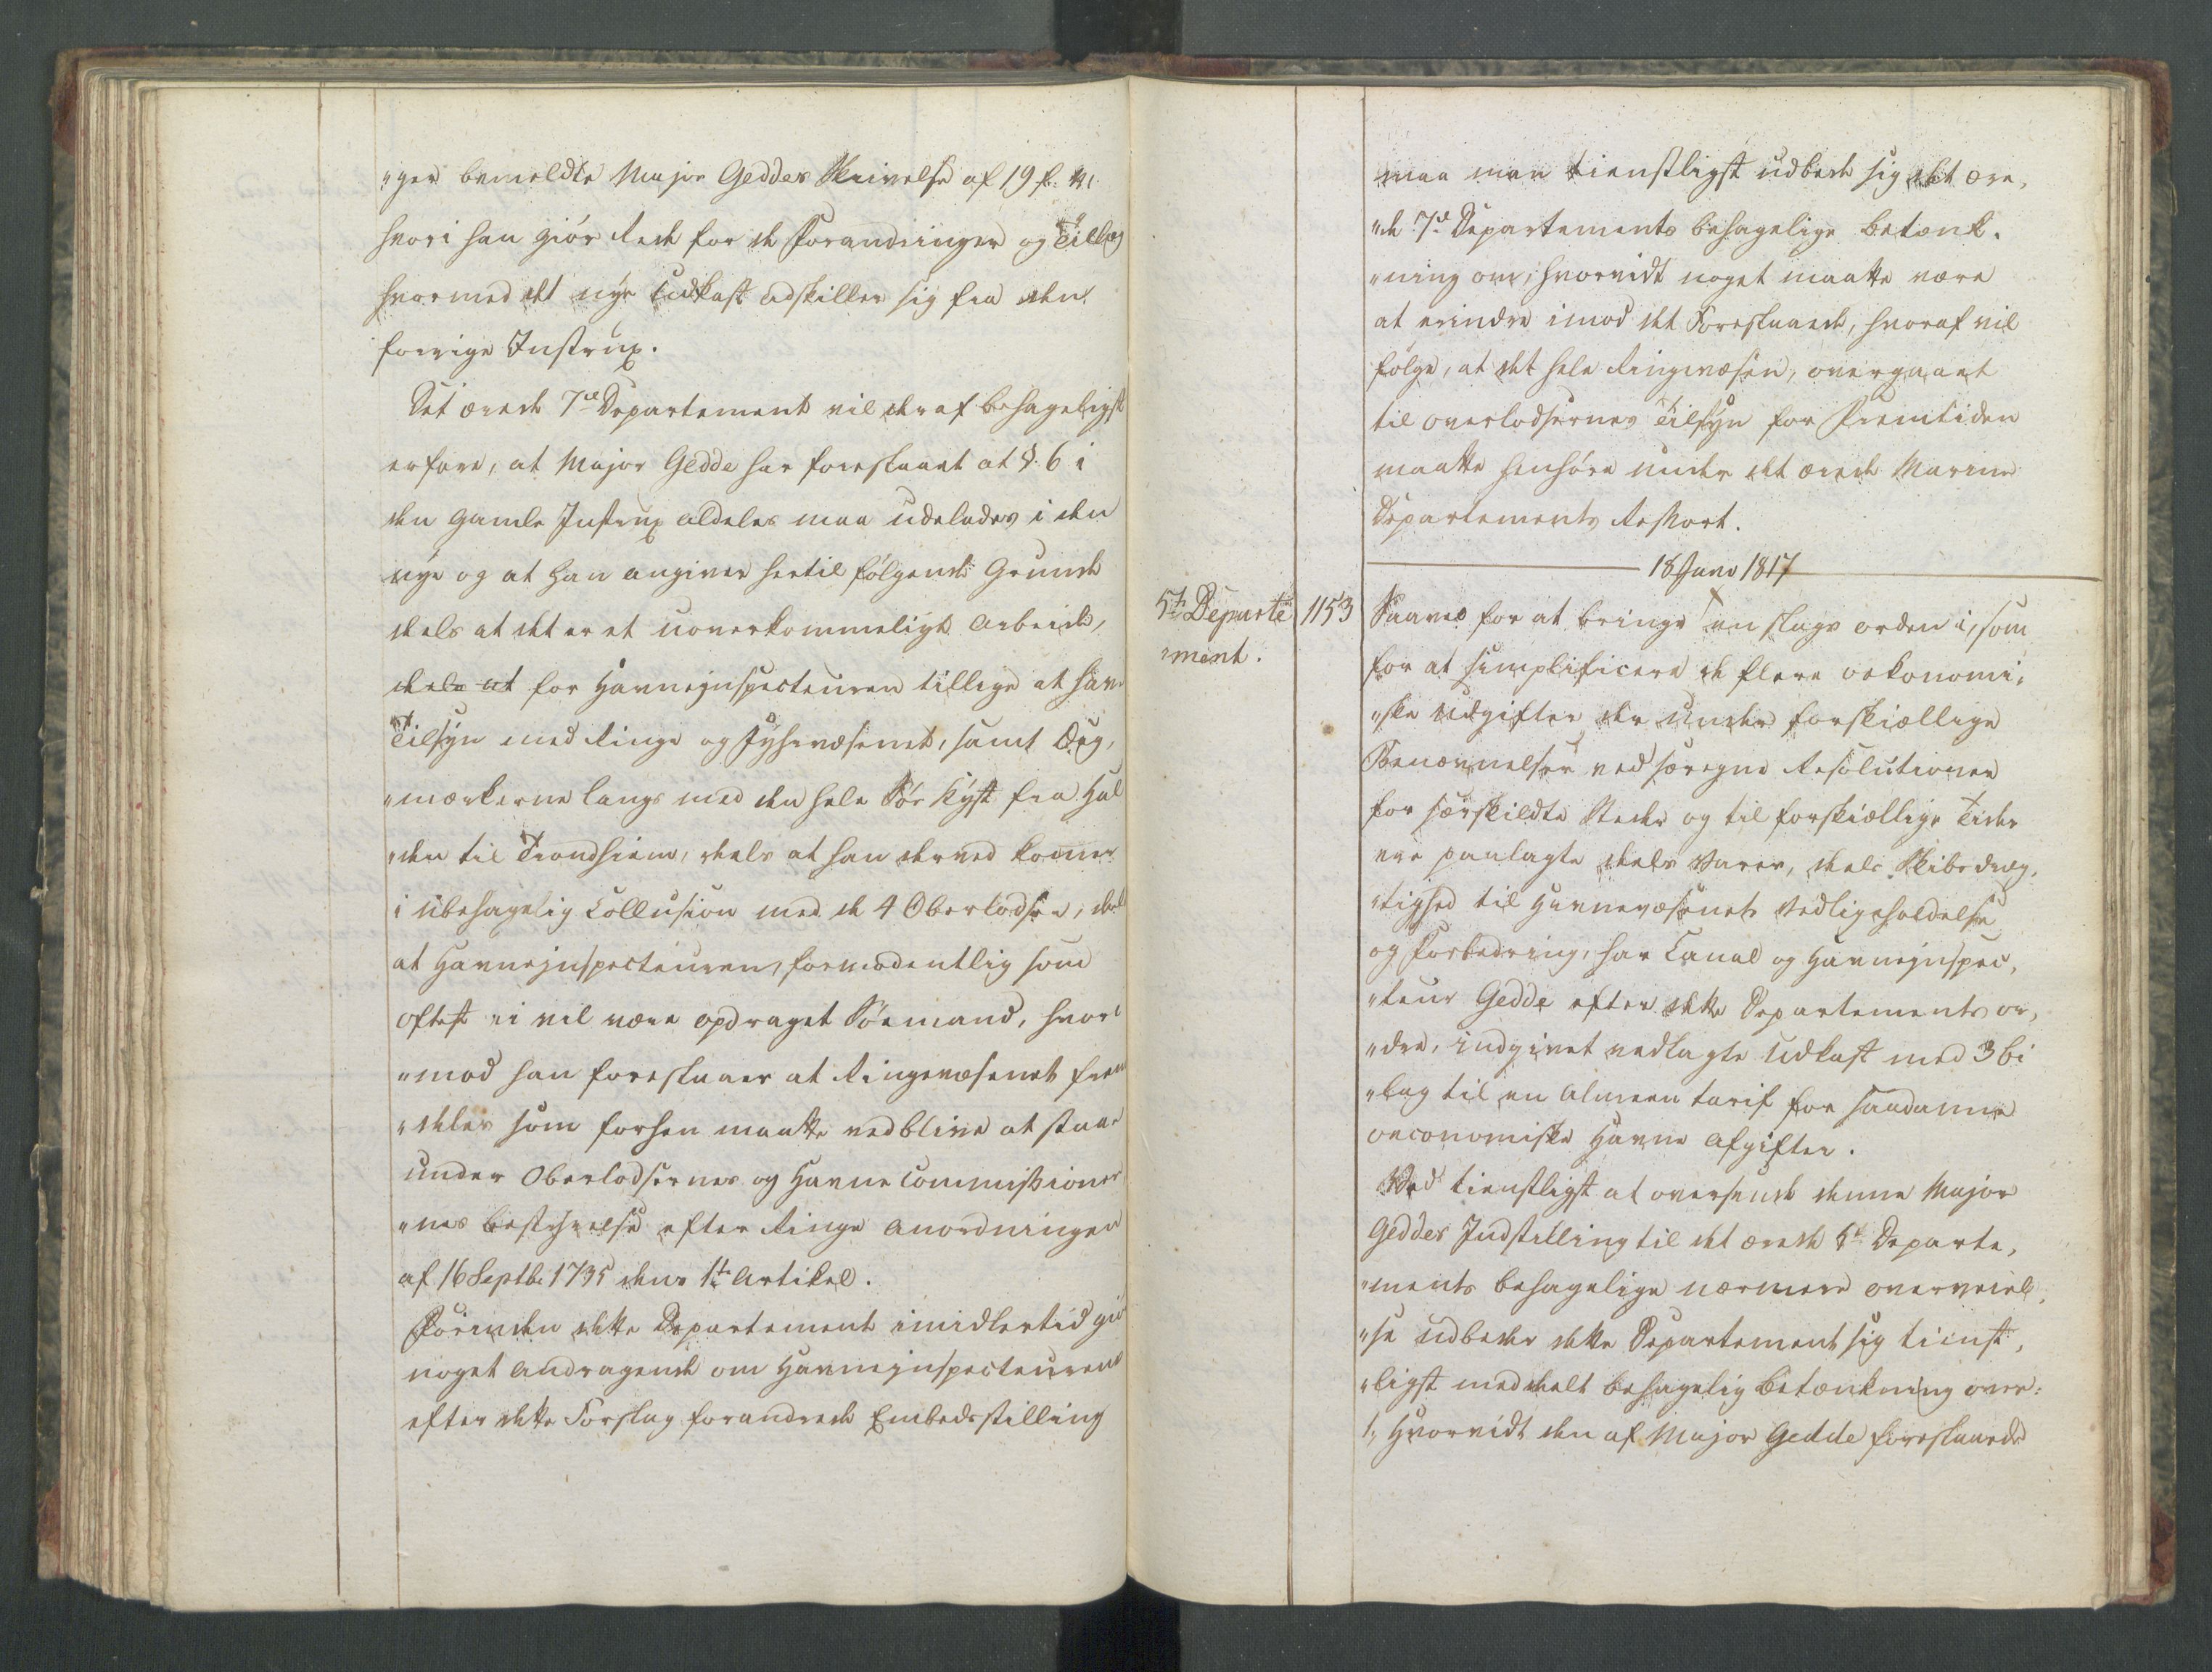 "ger bemeldte Major Geddes Skrivelse af 19 f. M.
hvori han giör Rede for de Forandringer og Tillæg
hvormed det nye Udkast adskiller sig fra den
forrige Instrux.
Det ærede 7de Departement vil deraf behageligst
erfare, at Major Gedde har foreslaaet at §. 6 i
den gamle Instrux aldeles maa udelades i den
nye og at han angiver hertil følgende Grunde
deels at det er et uoverkommeligt Arbeide,
deels at for Havneinspecteuren tillige at have
Tilsyn med Ringe og Fyhrvæsenet, samt Dug,
"mærkerne langs med den hele Söe Kyst fra Hal
"den til Trondhiem, deels at han derved kommer
i ubehagelig Collusion med de 4 Oberlodser, deels
at Havneinspecteuren, formodentlig som
oftest ei vil være opdraget Söemand, hvor
"mod han foreslaaer at Ringevæsenet frem
"deles som forhen maatte vedblive at staae
under Oberlodsernes og Havne Commissioner
"nes bestyrelse efter Ringe Anordningen
af 16 Septbr 1735 dens 1te Artikel.
Förinden dette Departement imidlertid giör
noget Andragende om Havneinspecteurens
efter dette Forslag forandrede Embedsstilling
maa man tienstligst udbede sig det ære,
"de 7de Departements behagelige betænk,
"ning om, hvorvidt noget maatte være
at erindre imod det Foreslaaede, hvoraf vil
følge, at det hele Ringevæsen, overgaaet
til Overlodsernes Tilsyn for Fremtiden
maatte henhöre under det ærede Marine
Departements Ressort.
18 Juni 1817
5te Departe
"ment.
1153
Saavel for at bringe en slags orden i, som
for at simplificere de flere oekonomi,
"ske Udgifter der under forskiællige
Benævnelser ved særegne Resolutioner
for særskildte Steder og til forskiællige Tider
ere paalagte deels Varer, deels Skibsdræg,
"tighed til Havnevæsenets Vedligeholdelse
og Forbedring, har Canal og Havneinspec,
"teur Gedde efter dette Departements or,
"dre, indgivet vedlagte Udkast med 3 bi
"lag til en almeen tarif for saadanne
oeconomiske Havne Afgifter.
Ved tienstligst at oversende denne Major
Geddes Indstilling til det ærede 5te Departe,
"ments behagelige nærmere overveiel,
"se udbeder dette Departement sig tienst,
"ligst meddeelt behagelig Betænkning over:
1, Hvorvidt den af Major Gedde foreslaaede